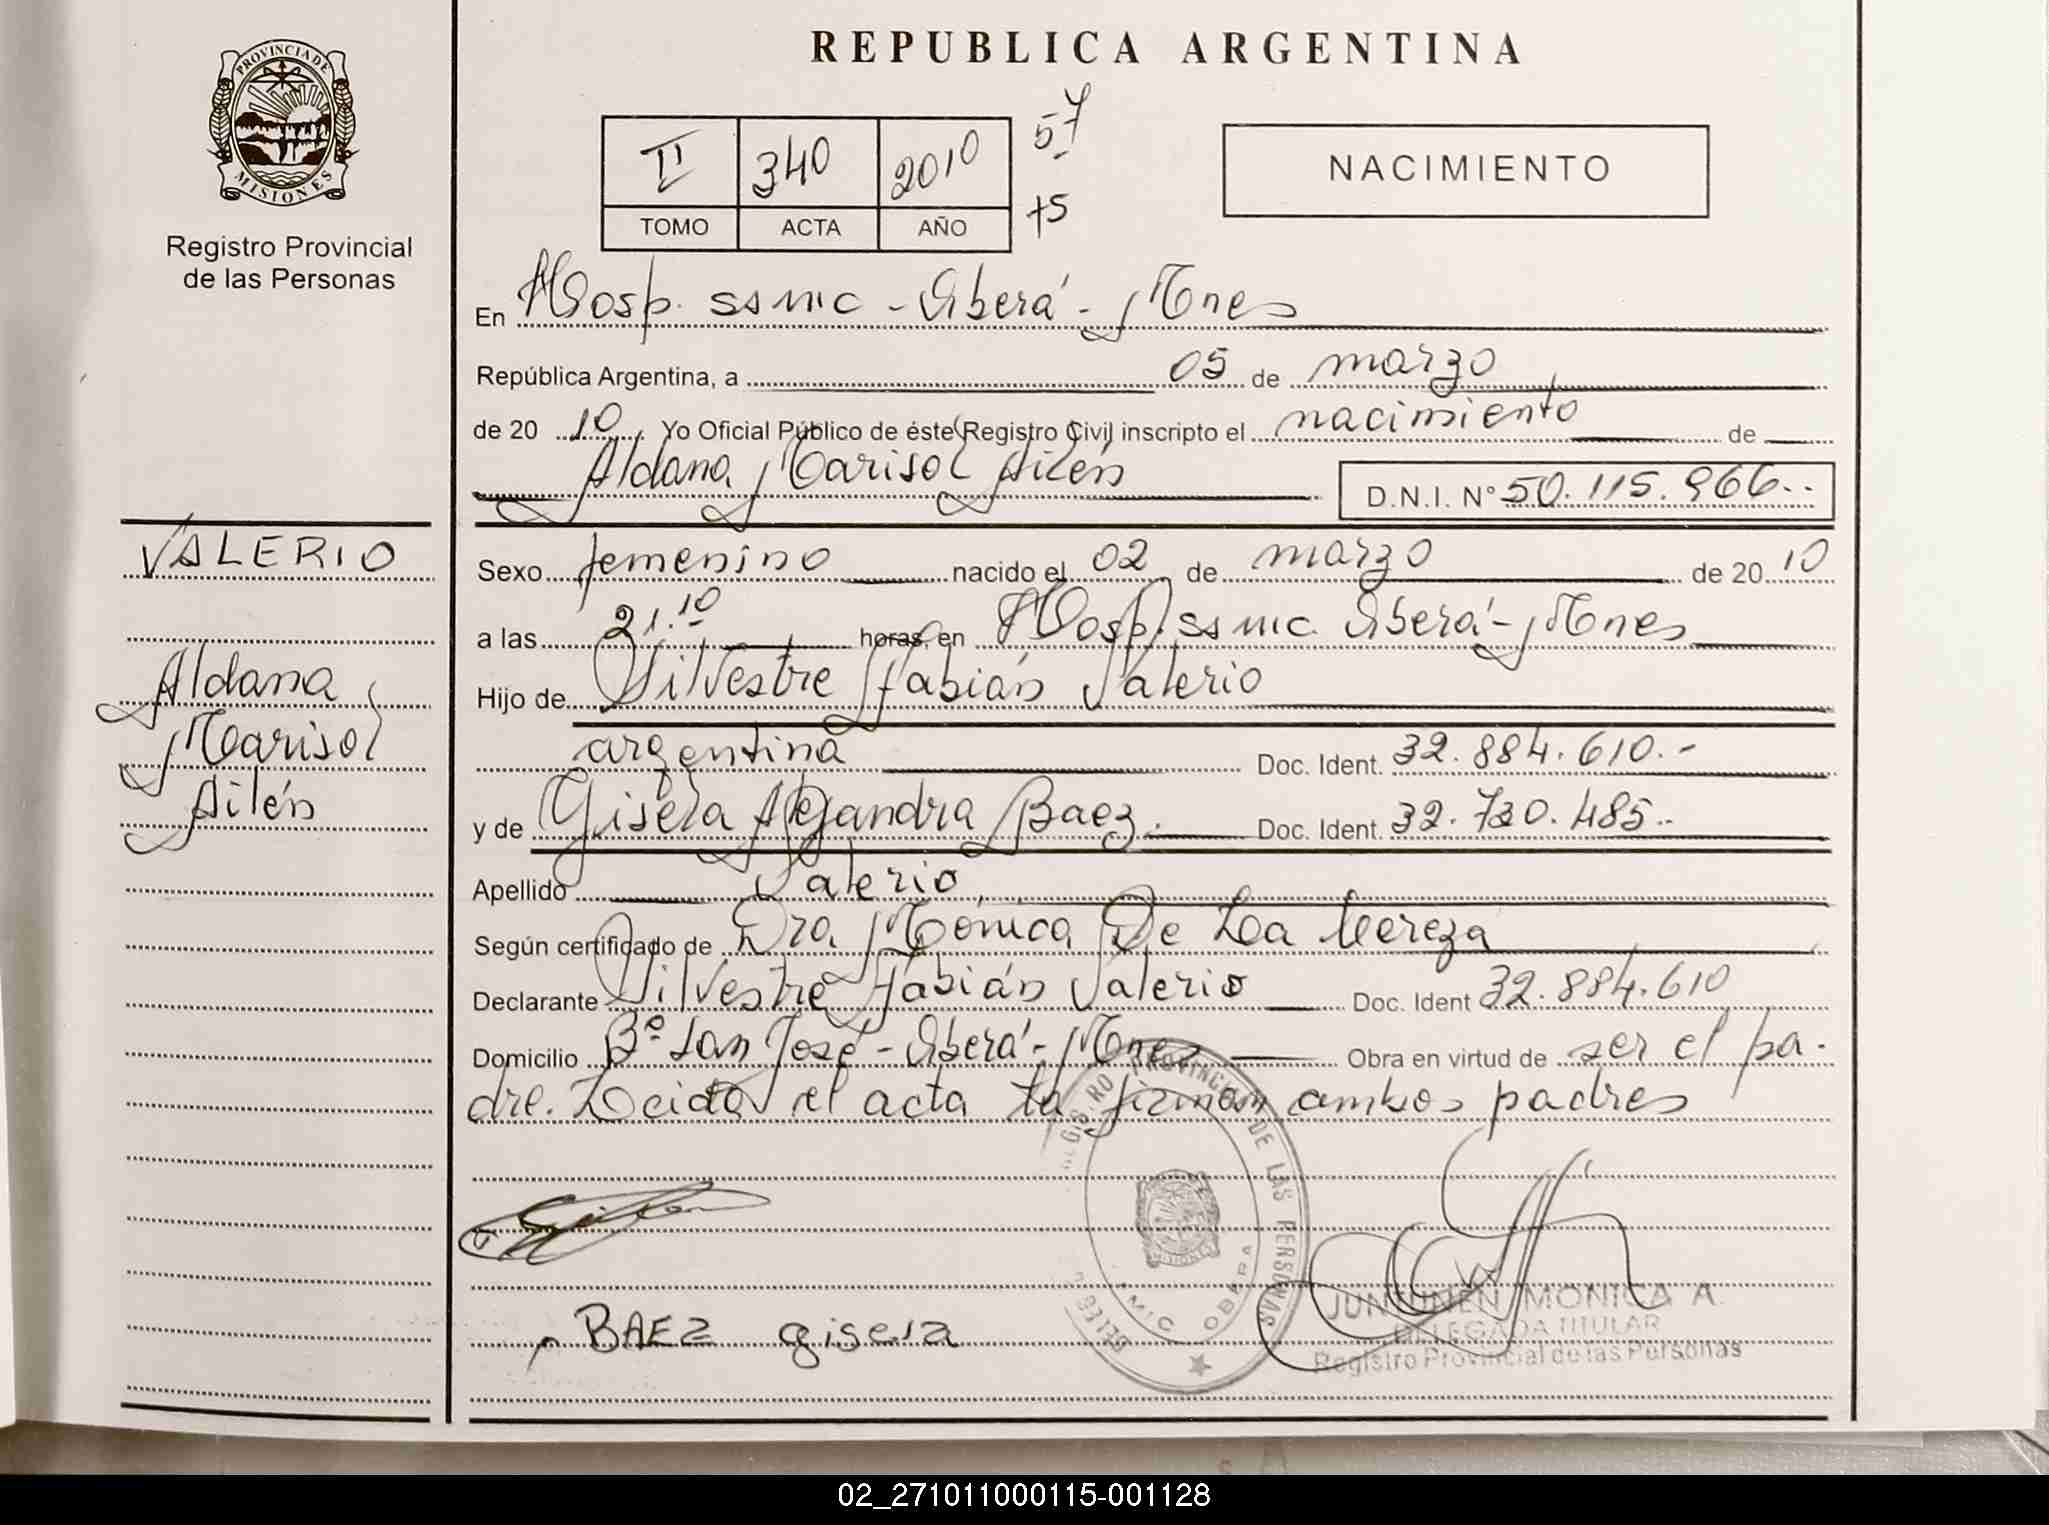 REPUBLICA ARGENTINA
PROVINCIA DE
MISIONES
Registro Provincial
de las Personas
II 340 2010
TOMO ACTA AÑO
57
+5
NACIMIENTO
En Hosp. ssmc - Oberá - Mnes
República Argentina, a 05 de marzo
de 20 10 Yo Oficial Público de éste Registro Civil inscripto el nacimiento de
Aldana Marisol Ailén D.N.I. N° 50.115.966..
VALERIO
Aldana
Marisol
Ailén
Sexo femenino nacido el 02 de marzo de 20 10
a las 21.10 horas, en Hosp. ssmc. Oberá - Mnes
Hijo de Silvestre Fabián Valerio
argentina Doc. Ident. 32.884.610.-
y de Gisela Alejandra Baez. Doc. Ident. 32.730.485..
Apellido Valerio
Según certificado de Dra Mónica De La
Declarante Silvestre Fabián Valerio Doc. Ident 32.884.610
Domicilio Bº San José - Oberá - Mnes Obra en virtud de ser el pa-
dre. Leida el acta la firman ambos padres
REGISTRO PROVINCIAL DE LAS PERSONAS
MISIONES
OBERA
BAEZ gisela
JUNTUNEN MONICA A.
DELEGADA TITULAR
Registro Provincial de las Personas
02_271011000115-001128